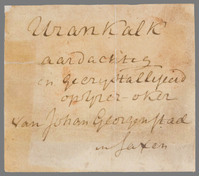 Urankalk
aardachtig
en gecrystalliseerd
op Yzer-oker
van Johan Georgenstad
in Saxen